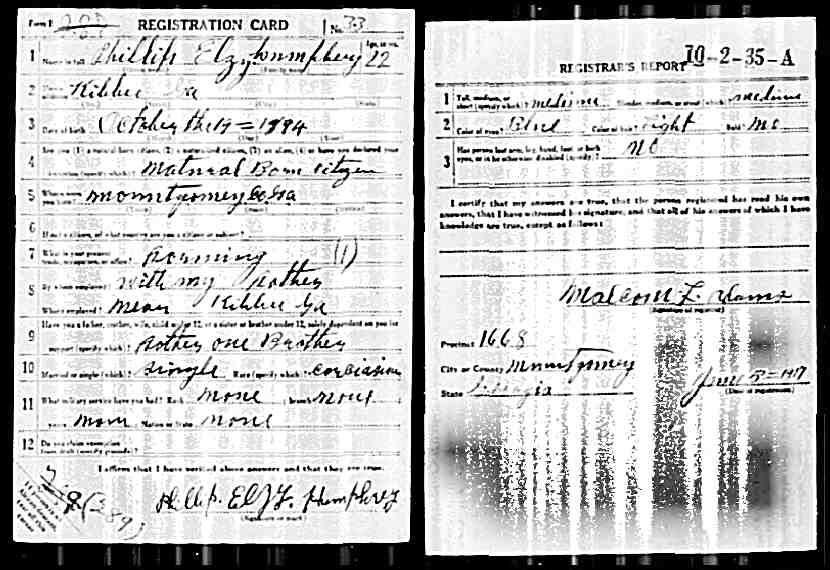 Form 1 REGISTRATION CARD No. 33
1 Name in full Phillip Elzy Humphrey Age, in yrs. 22
2 Kibbee Ga
3 Date of birth October the 19 = 1894
4 Are you (1) a natural-born citizen, (2) a naturalized citizen, (3) an alien, (4) or have you declared your
(specify which)? Natural Born citizen
5 Where were you born? mountgomey Co Ga
6 If not a citizen, of what country are you a citizen or subject?
7 What is your present trade, occupation, or office? Farming (1)
8 By whom employed? with my Father
Where employed? near Kibbee Ga
9 Have you a father, mother, wife, child under 12, or a sister or brother under 12, solely dependent on you for
support (specify which)? Father one Brother
10 Married or single (which)? single Race (specify which)? Concision
11 What military service have you had? Rank none ; branch none
years none ; Nation or State none
12 Do you claim exemption from draft (specify grounds)?
I affirm that I have verified above answers and that they are true.
Phillip Elzy Humphrey
(Signature or mark)
REGISTRAR'S REPORT 10-2-35-A
1 Tall, medium, or short (specify which)? medium Slender, medium, or stout (which)? medium
2 Color of eyes? Blue Color of hair? Light Bald? no
3 Has person lost arm, leg, hand, foot, or both eyes, or is he otherwise disabled (specify)? no
I certify that my answers are true, that the person registered has read his own
answers, that I have witnessed his signature, and that all of his answers of which I have
knowledge are true, except as follows:
Malcom L Adams
(Signature of registrar)
Precinct 1668
City or County Mountgomey
State Georgia June 5 = 1917
(Date of registration)